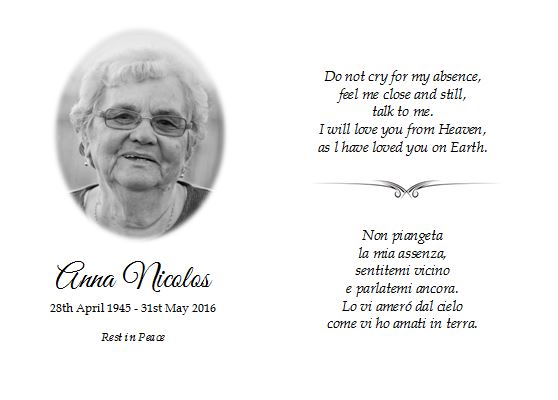 Anna Nicolos
28th April 1945 - 31st May 2016
Rest in Peace
Do not cry for my absence,
feel me close and still,
talk to me.
I will love you from Heaven,
as I have loved you on Earth.
Non piangeta
la mia assenza,
sentitemi vicino
e parlatemi ancora.
Lo vi ameró dal cielo
come vi ho amati in terra.